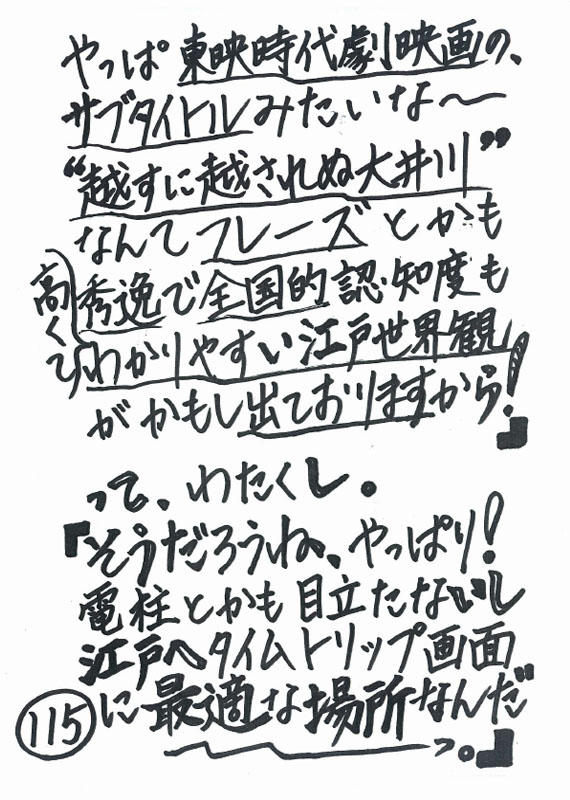 やっぱ東映時代劇映画の、
サブタイトルみたいな〜
“越すに越されぬ大井川”
なんてフレーズとかも
秀逸で全国的認知度も
高くてわかりやすい江戸世界観
がかもし出ておりますから!』
って、わたくし。
『そうだろうね、やっぱり!
電柱とかも目立たないし
江戸へタイムトリップ画面
に最適な場所なんだ
〜っ。』
115